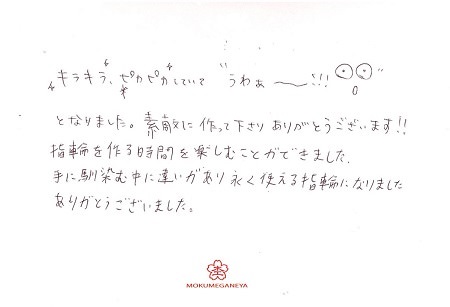 キラキラ、ピカピカしていて "うわぁ〜!!!"
となりました。素敵に作って下さりありがとうございます!!
指輪を作る時間を楽しむことができました.
手に馴染む中に違いがあり永く使える指輪になりました
ありがとうございました。
MOKUMEGANEYA